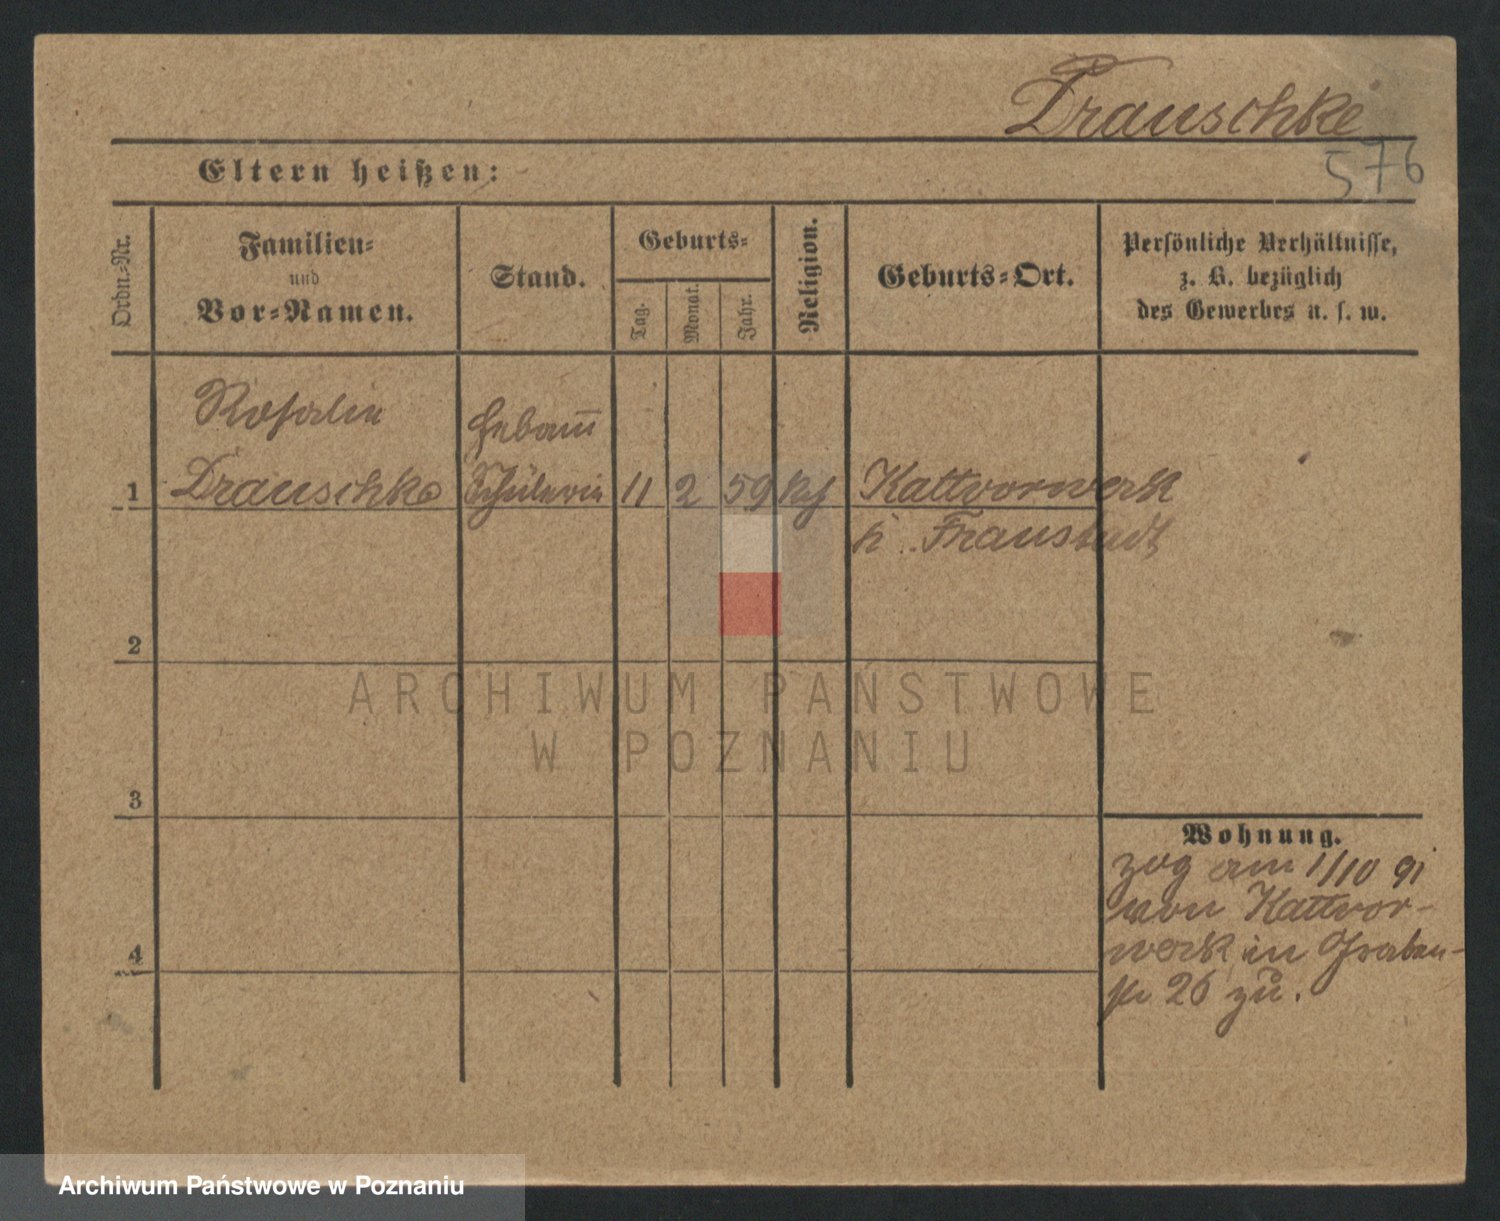 Drauschke
576
Eltern heißen:
Ordn.-Nr.
Familien-
und
Vor-Namen.
Stand.
Geburts-
Tag.
Monat.
Jahr.
Religion.
Geburts-Ort.
Persönliche Verhältnisse,
z. B. bezüglich
des Gewerbes u. s. w.
Rosalie
Hebam̄
1 Drauschke Schülerin 11 2 59 Kath Kattvorwerk
Fraustadt
2
3
4
Wohnung.
zog am 1/10 91
von Kattvor-
werk in Graben-
str 26 zu.
ARCHIWUM PAŃSTWOWE
W POZNANIU
Archiwum Państwowe w Poznaniu